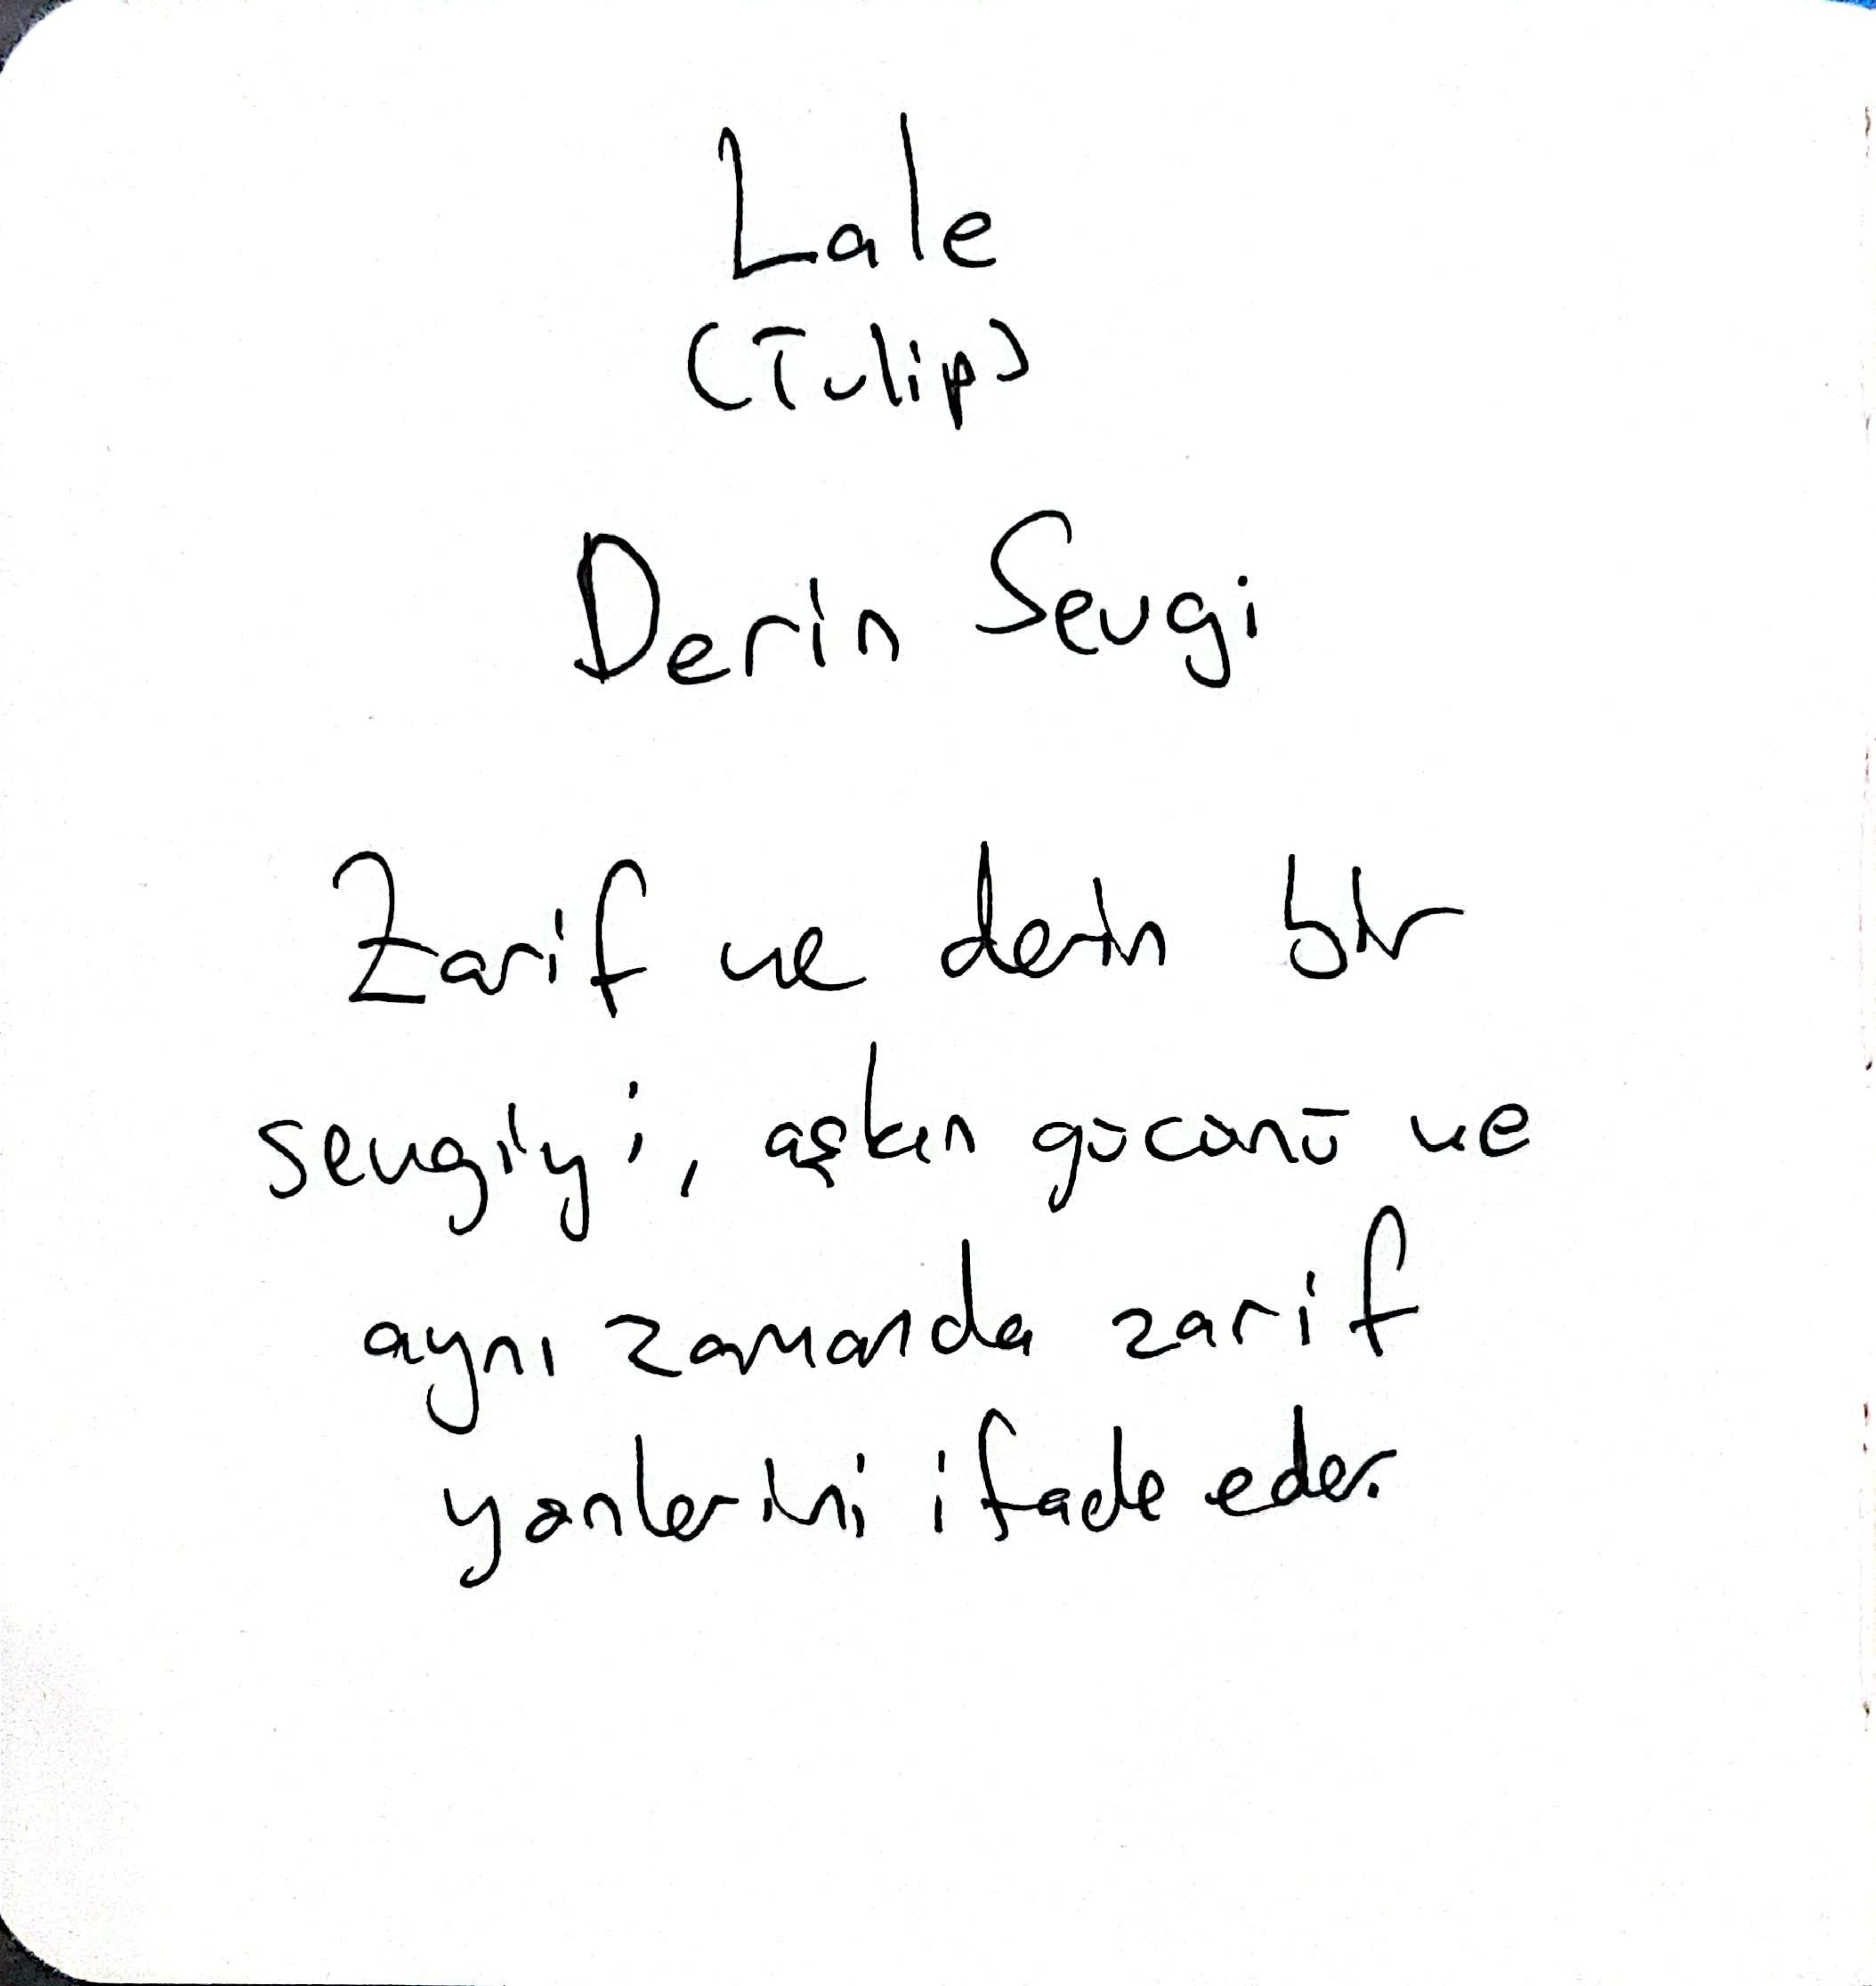 Lale
(Tulip)
Derin Sevgi
Zarif ve derin bir
sevgiyi, aşkın gücünü ve
aynı zamanda zarif
yanlarini ifade eder.